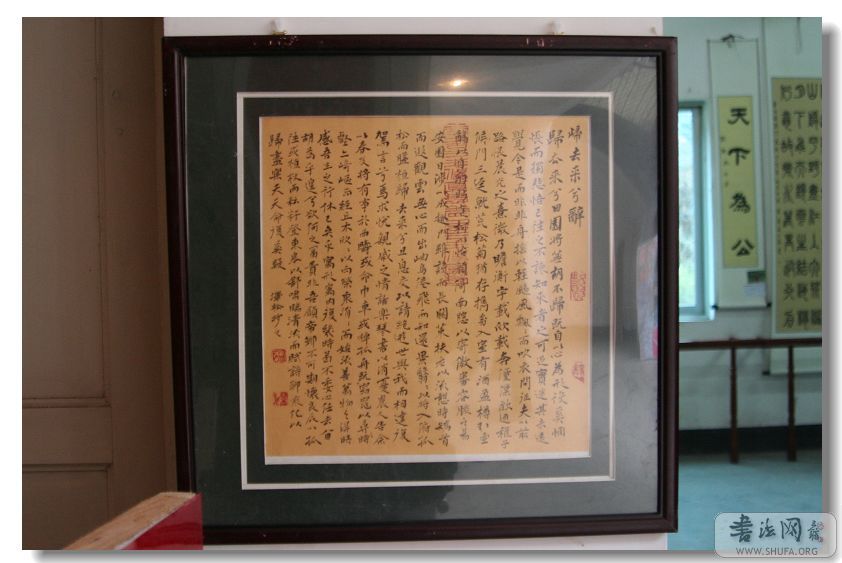 歸去來兮辭
歸去來兮田園將蕪胡不歸既自以心為形役奚惆
悵而獨悲悟已往之不諫知來者之可追實迷其未遠
覺今是而昨非舟搖以輕颺風飄而吹衣問征夫以前
路恨晨光之熹微乃瞻衡宇載欣載奔僮僕歡迎稚子
候門三逕就荒松菊猶存攜幼入室有酒盈樽引壺
觴以自酌眄庭柯以怡顏倚南窗以寄傲審容膝之易
安園日涉以成趣門雖設而長關策扶老以流憩時矯首
而遐觀雲無心而出岫鳥倦飛而知還景翳翳以將入撫孤
松而盤桓歸去來兮請息交以絕遊世與我而相違復
駕言兮焉求悅親戚之情話樂琴書以消憂農人告余
以春及將有事於西疇或命巾車或棹孤舟既窈窕以尋
壑亦崎嶇而經丘木欣欣以向榮泉涓涓而始流善萬物之得時
感吾生之行休已矣乎寓形宇內復幾時曷不委心任去留
胡為乎遑遑兮欲何之富貴非吾願帝鄉不可期懷良辰以孤
往或植杖而耘耔登東皋以舒嘯臨清流而賦詩聊乘化以
歸盡樂夫天命復奚疑
天下為公
书法网
WWW.SHUFA.ORG